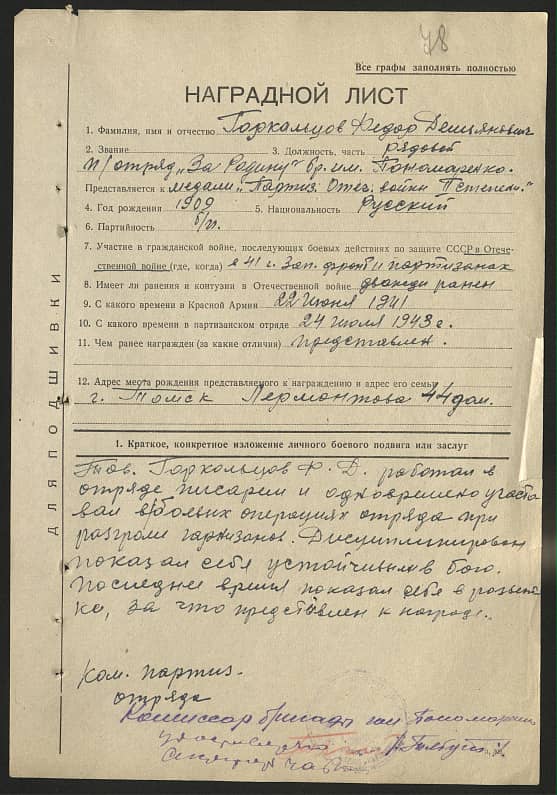 78
Все графы заполнять полностью
НАГРАДНОЙ ЛИСТ
1. Фамилия, имя и отчество Горкальцов Федор Демьянович
2. Звание 3. Должность, часть рядовой
п/отряд „За Родину" бр. им. Пономаренко.
Представляется к медали „Партиз. Отеч. войны II степени."
4. Год рождения 1909 5. Национальность Русский
6. Партийность б/п.
7. Участие в гражданской войне, последующих боевых действиях по защите СССР в Отече-
ственной войне (где, когда) с 41 г. Зап. фронт и партизанах
8. Имеет ли ранения и контузии в Отечественной войне дважды ранен
9. С какого времени в Красной Армии 22 июня 1941
10. С какого времени в партизанском отряде 24 июля 1943 г.
11. Чем ранее награжден (за какие отличия) представлен.
12. Адрес места рождения представляемого к награждению и адрес его семьи
г. Томск Лермонтова 44 дом.
1. Краткое, конкретное изложение личного боевого подвига или заслуг
Тов. Горкольцов Ф. Д. работал в
отряде писарем и одновремено участво
вал в боевых операциях отряда при
разгроме гарнизонов. Дисциплинирован
показал себя устойчивым в бою.
Последнее время показал себя в развед
ке, за что представлен к награде.
Ком. партиз.
отряда
Комиссар бригады им Пономаренко
ДЛЯ ПОДШИВКИ